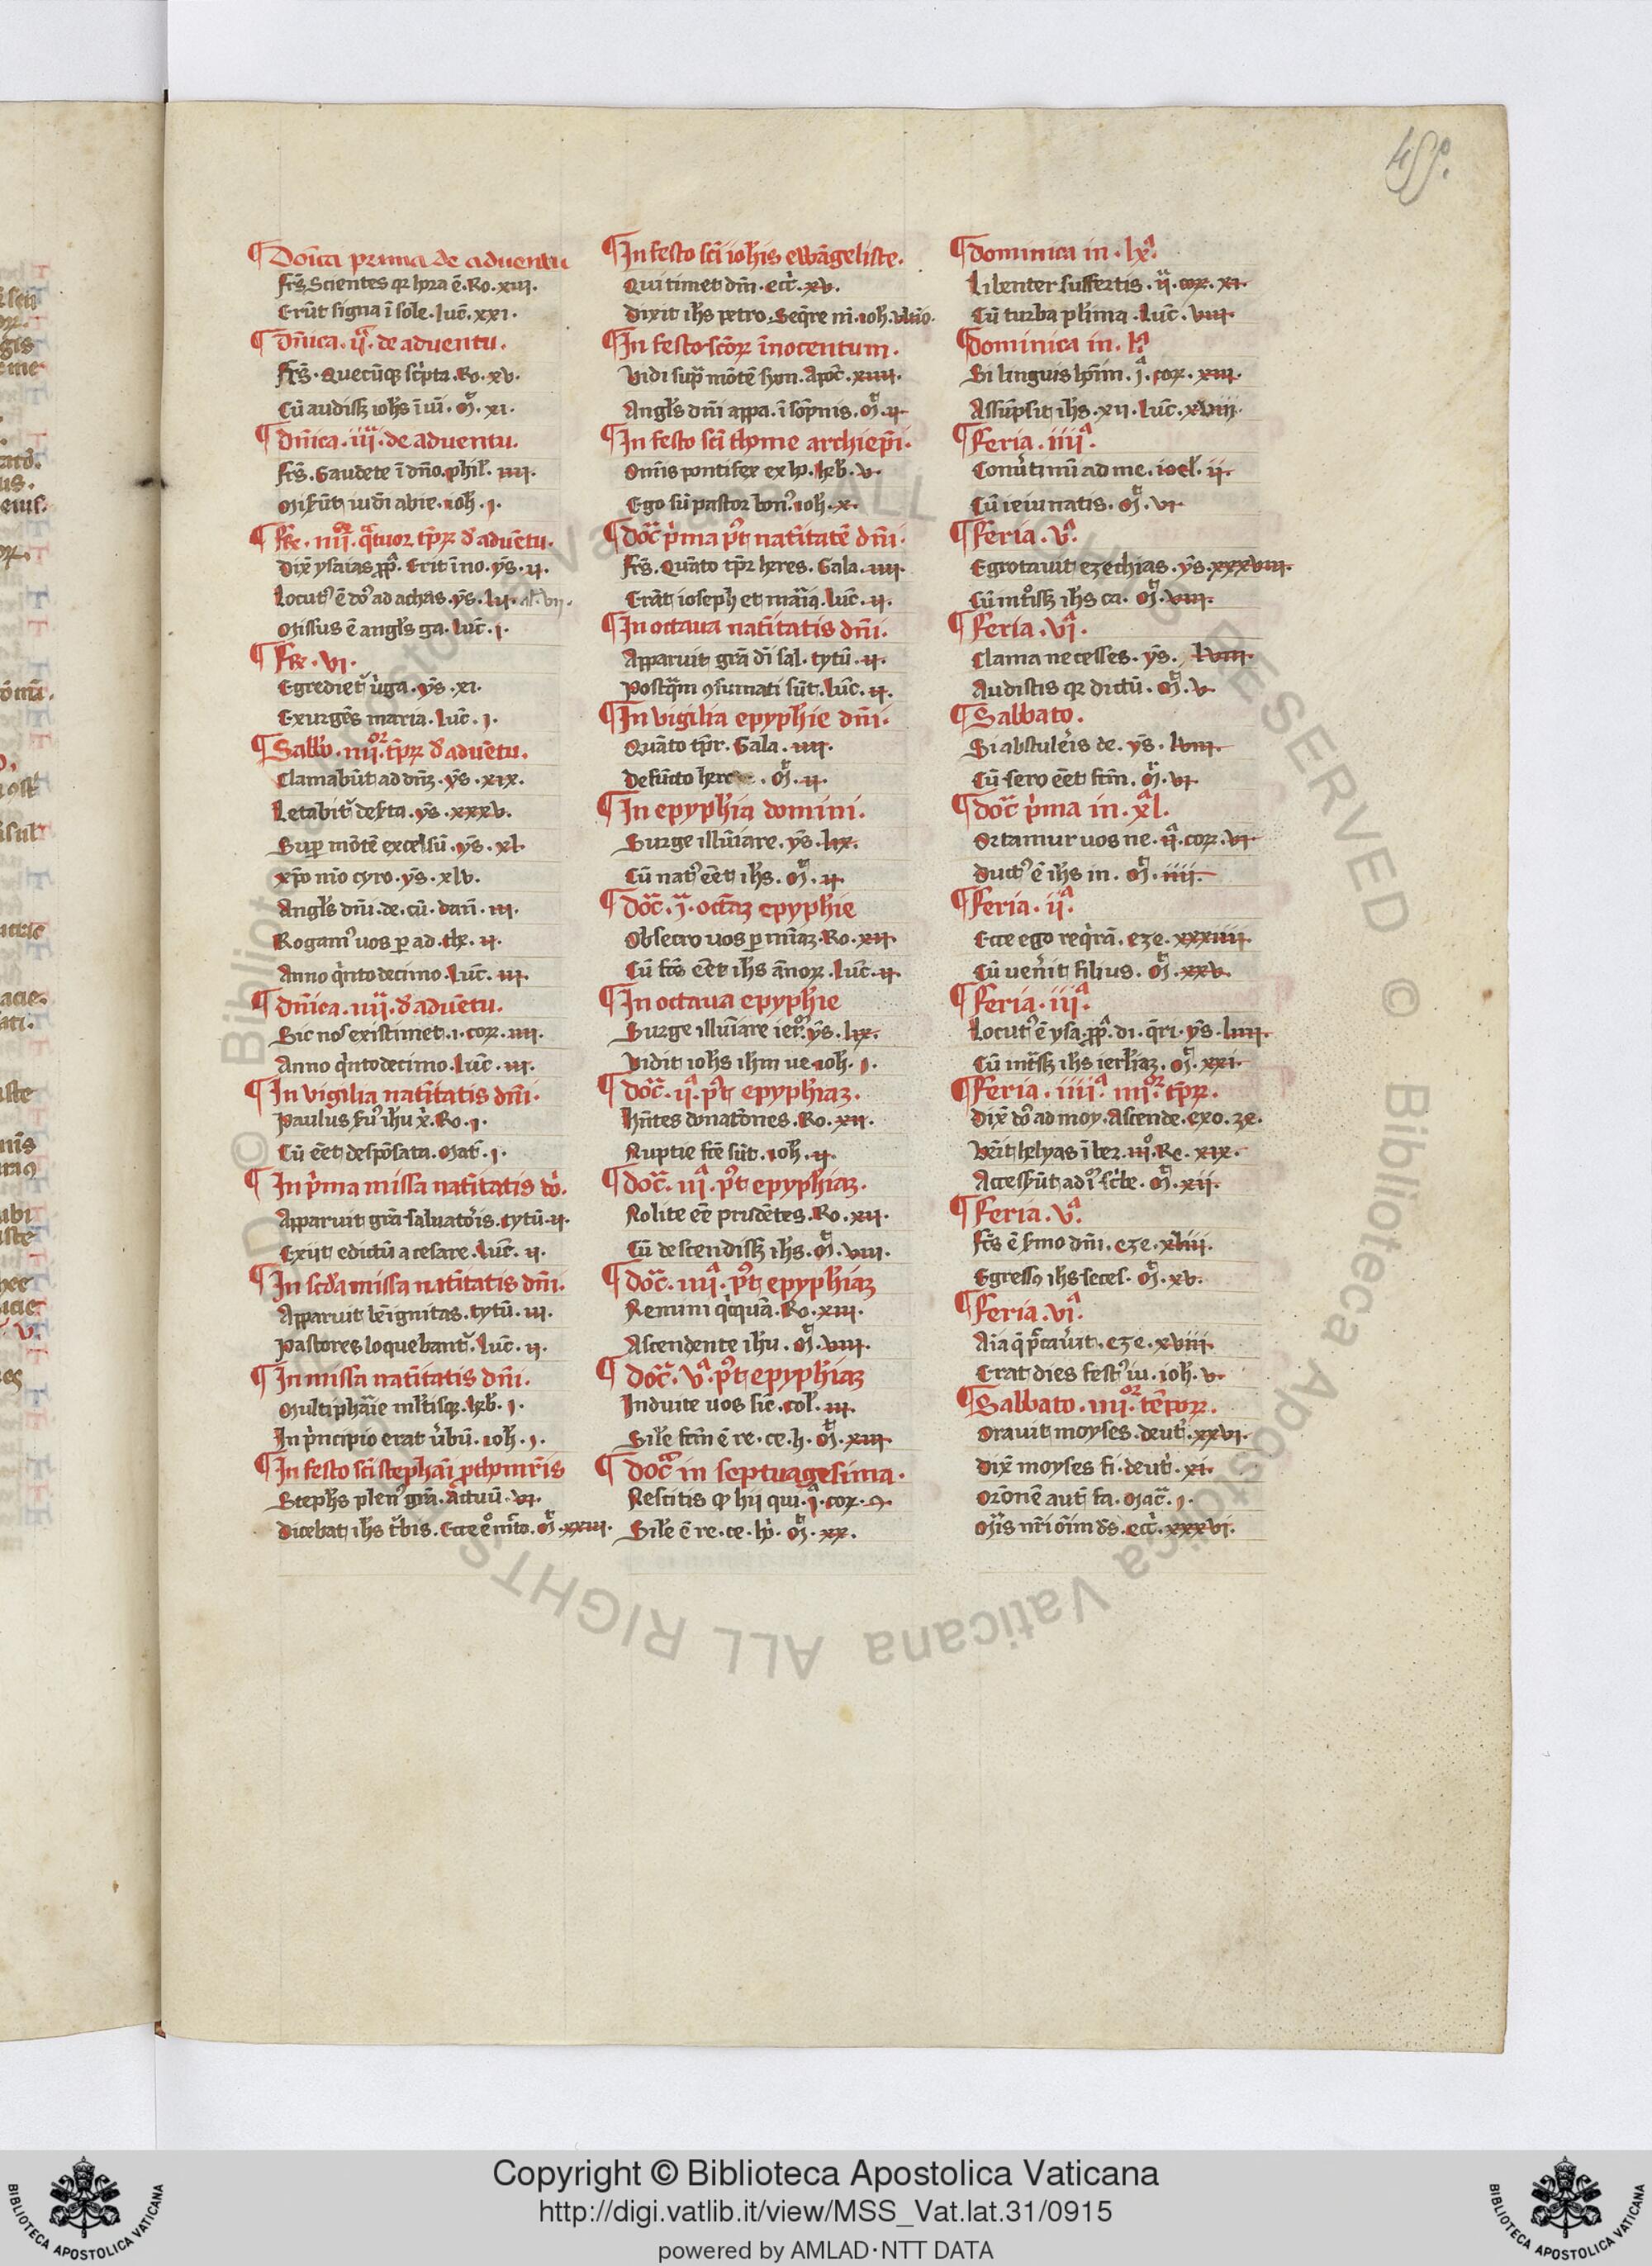 458.
¶ Doīca prima de aduentu
Frēs. Scientes qr hora ē. Ro. xiii.
Erūt signa ī sole. luc̄. xxi.
¶ Dn̄ica. ijͣ. de aduentu.
Frēs. Quecūqꝫ scͥpta. Ro. xv.
Cū audissꝫ ioh̄s ī uī. Mͭ. xi.
¶ Dn̄ica. iijͣ. de aduentu.
Frēs. Gaudete ī dn̄o. phil̄. iiii.
Miserūt iudī abie. ioh̄. i.
¶ Fͬe. iiijͦʳ. qͣtuor tp̄ꝝ d̾ aduētu.
Dix̄ ysaias ꝓph̄. Erit ī no. ys̄. ii.
Locutꝰ ē do᷒ ad achas. ys̄. lii. al̄. vii.
Missus ē angl̄s ga. luc̄. i.
¶ Fͬe. vi.
Egredietᷣ uͥga. ys̄. xi.
Exurgēs maria. luc̄. i.
¶ Sabb̄o. iiijͦʳ. tp̄ꝝ d̾ aduētu.
Clamabūt ad dn̄ꝫ. ys̄. xix.
Letabitᷣ deserta. ys̄. xxxv.
Suꝑ mōtē excelsū. ys̄. xl.
xp̄o m̄o cyro. ys̄. xlv.
Angl̄s dn̄i. de. cū. dan̄. iii.
Rogamꝰ uos ꝑ ad. thꝭ. ii.
Anno qͥnto decimo. luc̄. iii.
¶ Dn̄ica. iiij. d̾ aduētu.
Sic nos̾ existimet. i. coꝝ. iiii.
Anno qͥnto decimo. luc̄. iii.
¶ In vigilia natīitatis dn̄i.
Paulus suꝰ ih̄u x̄. Ro. i.
Cū eēt despōsata. Mat̄. i.
¶ In pͥma missa natīitatis do᷒.
Apparuit gr̄a saluatoͥis. tytū. ii.
Exijt edictū a cesare. luc̄. ii.
¶ In scd̄a missa natīitatis dn̄i.
Apparuit bēignitas. tytū. iii.
Pastores loquebantᷣ. luc̄. ii.
¶ In missa natīitatis dn̄i.
Multiphāie ml̄tisqꝫ. heb̄. i.
In pͥncipio erat uͥbū. ioh̄. i.
¶ In festo sc̄i stephāi ꝓthomr̄is
Steph̄s plenꝰ gr̄a. Actuū. vi.
Dicebat ih̄s tͬbis. Ecce eͦ mͥto. Mͭ. xxiii.
¶ In festo sc̄i ioh̄is ewāgeliste.
Qui timet dm̄. ecc̄. xv.
Dixit ih̄s petro. Seqͬe m̄. ioh̄. vltīo.
¶ In festo sc̄oꝝ īnocentum.
Vidi supͣ mōtē syon. Apoc̄. xiiii.
Angl̄s dn̄i appa. ī sōpnis. Mͭ. ii.
¶ In festo sc̄i thome archiep̄i.
Om̄is pontifex ex ho. heb̄. v.
Ego sū pastor bonꝰ. ioh̄. x.
¶ Doc̄ pͥma pꝰt natīitatē dn̄i.
Frēs. Quāto tp̄r heres. Gala. iiii.
Erāt ioseph et mariā. luc̄. ii.
¶ In octaua natīitatis dn̄i.
Apparuit gr̄a dī sal. tytū. ii.
Postqͣm ꝯsumati sūt. luc̄. ii.
¶ In vigilia epyph̄ie dn̄i.
Quāto tp̄r. Gala. iiii.
Defūcto herode. Mͭ. ii.
¶ In epyph̄ia domini.
Surge illūiare. ys̄. lx.
Cū natꝰ eēt ih̄s. Mͭ. ii.
¶ Doc̄. jͣ. octāꝫ epyph̄ie
Obsecro uos ꝑ mīaꝫ. Ro. xii.
Cū fcūs eēt ih̄s ānoꝝ. luc̄. ii.
¶ In octaua epyph̄ie
Surge illūiare ierͦ. ys̄. lx.
Vidit ioh̄s ih̄m ue. ioh̄. i.
¶ Doc̄. ijͣ. pꝰt epyph̄iaꝫ.
Hn̄tes donatōnes. Ro. xii.
Nuptie fcē sūt. ioh̄. ii.
¶ Doc̄. iijͣ. pꝰt epyph̄iaꝫ.
Nolite eē prudētes. Ro. xii.
Cū descendissꝫ ih̄s. Mͭ. viii.
¶ Doc̄. iiijͣ. pꝰt epyph̄iaꝫ
Nemini qͥcquā. Ro. xiii.
Ascendente ih̄u. Mͭ. viii.
¶ Doc̄. vͣ. pꝰt epyph̄iaꝫ
Induite uos sic̄. col̄. iii.
Sil̄e fcm̄ ē re. ce. h. Mͭ. xiii.
¶ Docͣ in septuagesima.
Nescitis ꝙ hii qui. jͣ. coꝝ. 9.
Sil̄e ē re. ce. hoͥ. Mͭ. xx.
¶ Dominica in. lxͣ.
Libenter suffertis. ijͣ. coꝝ. xi.
Cū turba pl̄ima. luc̄. viii.
¶ Dominica in. lͣ.
Si linguis hoīm. jͣ. coꝝ. xiii.
Assūpsit ih̄s. xii. luc̄. xviii.
¶ Feria. iiijͣ.
Conūtimī ad me. ioel̄. ii.
Cū ieiunatis. Mͭ. vi.
¶ Feria. vͣ.
Egrotauit ezechias. ys̄. xxxviii.
Cū intͦissꝫ ih̄s ca. Mͭ. viii.
¶ Feria. vjͣ.
Clama ne cesses. ys̄. lviii.
Audistis qr dictū. Mͭ. v.
¶ Sabbato.
Si abstulēis de. ys̄. lviii.
Cū sero eēt fcm̄. Mͭ. vi.
¶ Doc̄ pͥma in. xͣl.
Ortamur uos ne. ijͣ. coꝝ. vi.
Ductꝰ ē ih̄s in. Mͭ. iiii.
¶ Feria. ijͣ.
Ecce ego reqͥrā. eze. xxxiiii.
Cū uenͥit filius. Mͭ. xxv.
¶ Feria. iijͣ.
Locutꝰ ē ysa. ꝓph̄. di. qͥri. ys̄. liiii.
Cū intͣssꝫ ih̄s ierl̄iaꝫ. Mͭ. xxi.
¶ Feria. iiijͣ. iiijͦʳ. tp̄ꝝ.
Dix̄ do᷒ ad moy. Ascende. exo. ze.
Vēit helyas ī ber. iijͦ. Re. xix.
Accesserūt ad ih̄ scͥbe. Mͭ. xii.
¶ Feria. vͣ.
Fcūs ē sermo dn̄i. eze. xliii.
Egressꝰ ih̄s seces. Mͭ. xv.
¶ Feria. viͣ.
Aīa q̄ pͨcauͥit. eze. xviii.
Erat dies festꝰ iu. ioh̄. v.
¶ Sabbato. iiijͦʳ. tēꝑoꝝ.
Orauit moyses. deut̄. xxvi.
Dix̄ moyses fi. deut̄. xi.
Orōnē aut̄ fa. Mac̄. i.
Mis̾ nr̄i oīm ds̄. ecc̄. xxxvi.
Copyright © Biblioteca Apostolica Vaticana
http://digi.vatlib.it/view/MSS_Vat.lat.31/0915
powered by AMLAD·NTT DATA